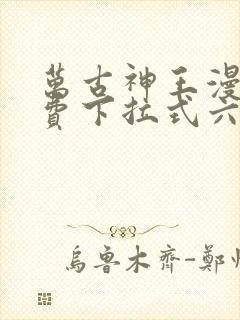 萬古神王漫
費下拉式六
烏魯木齊-鄭州